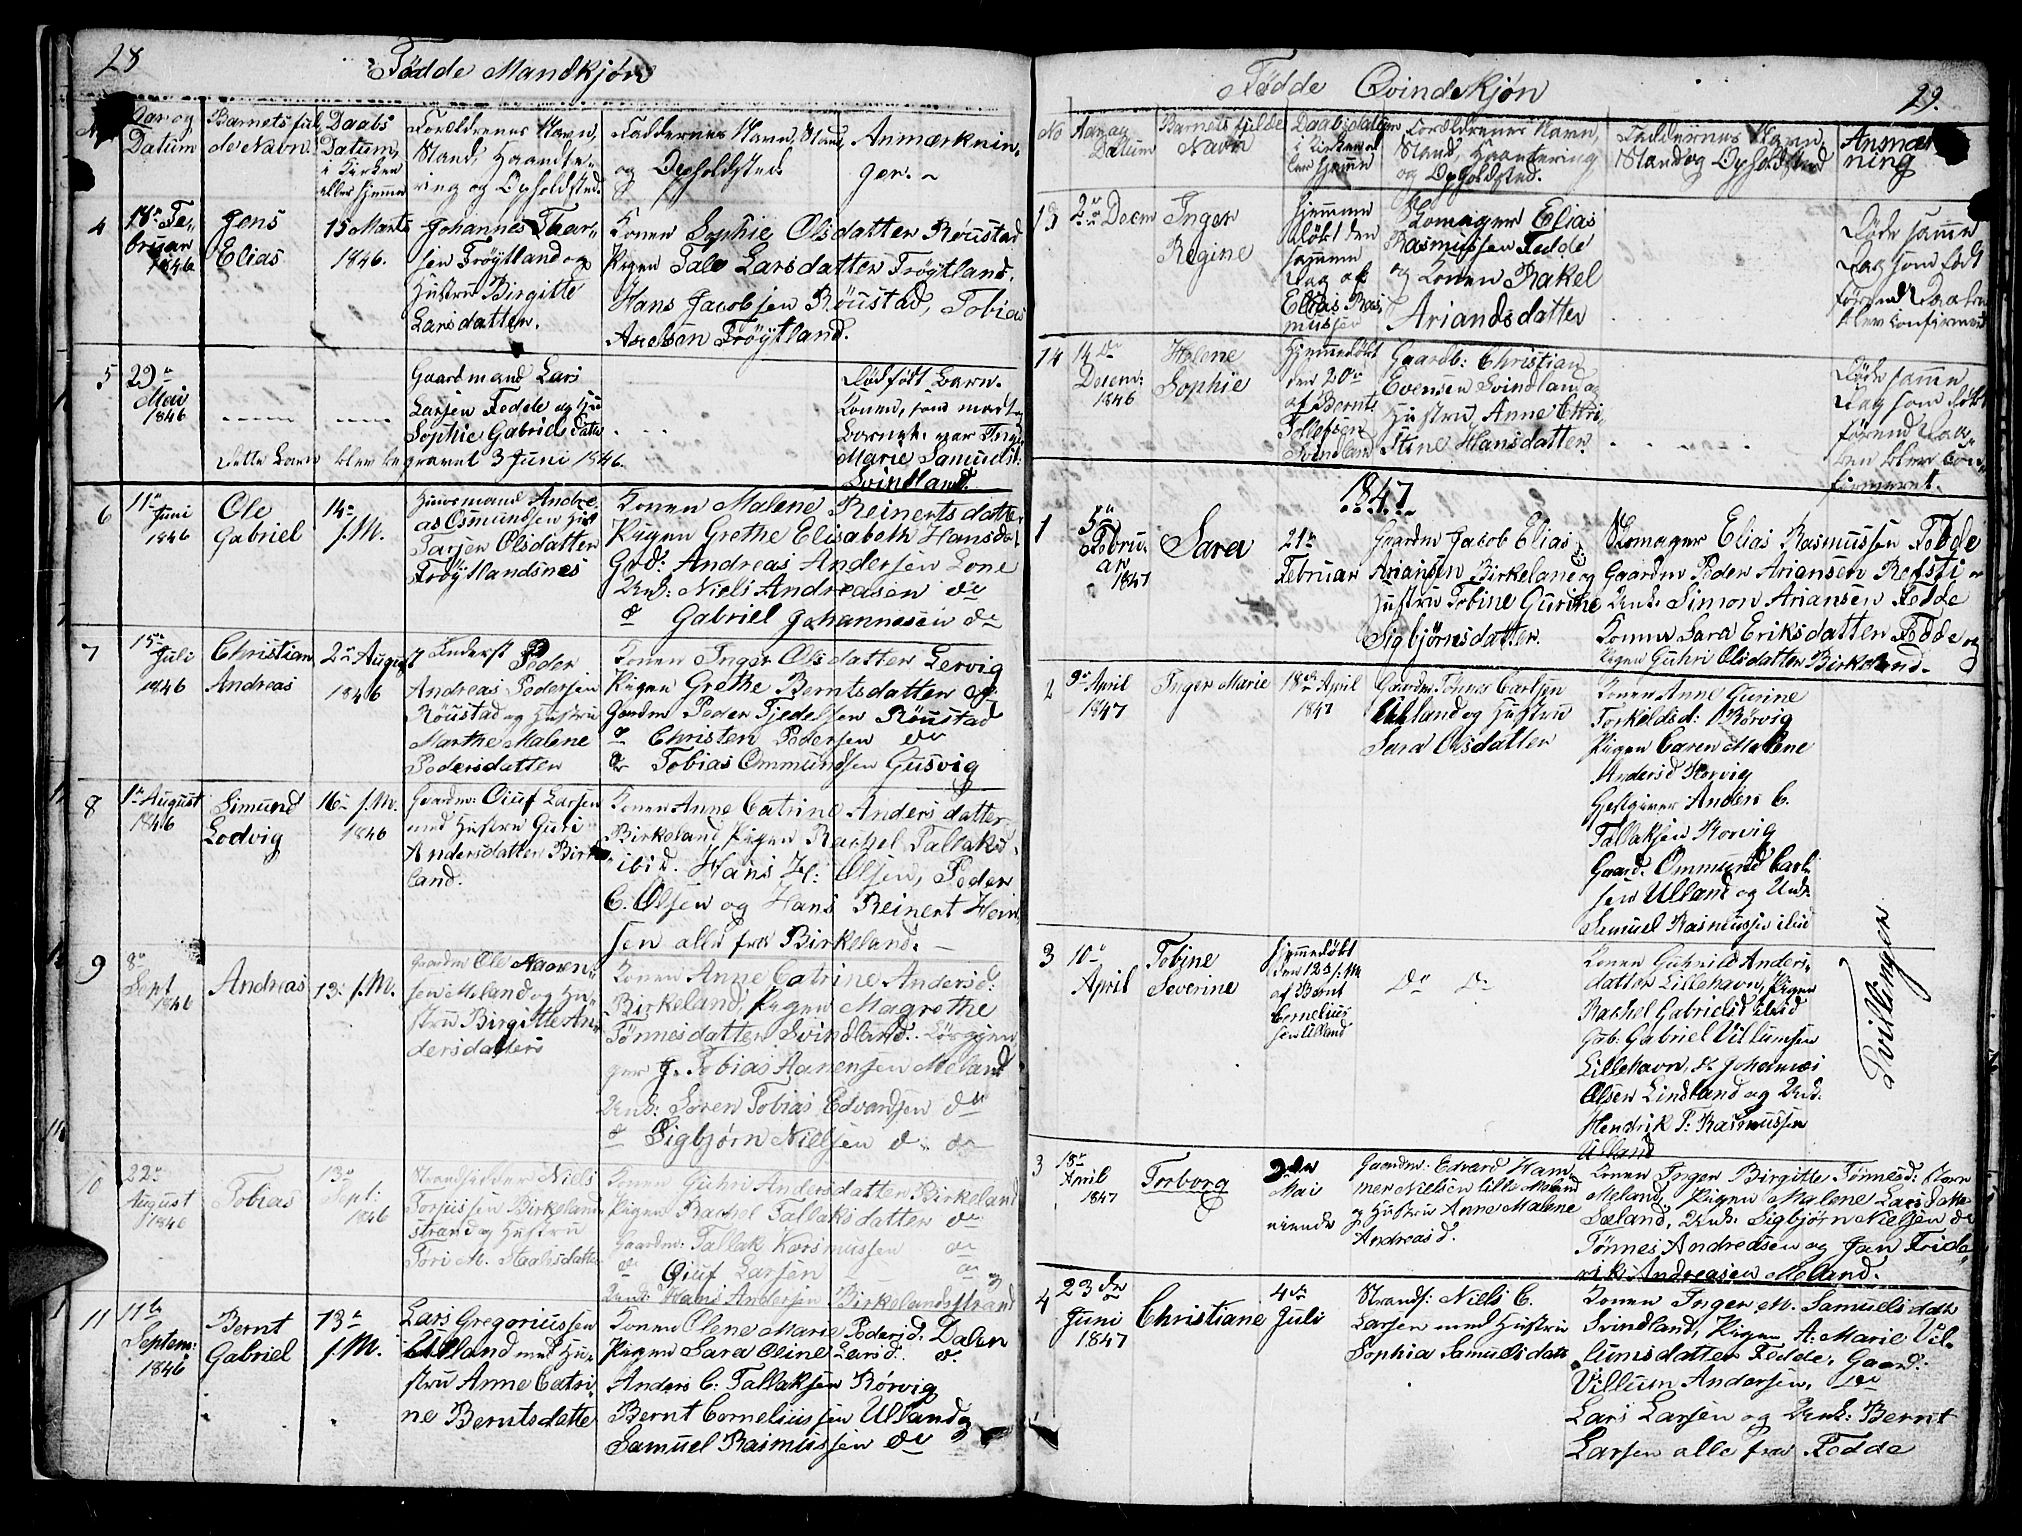 28
Fødde Mandkjøn
Aar og
Datum
Barnets ful
de Navn
Daabs
Datum,
i Kirken
eller hjemme
Forældrenes Navn,
Stand, Haandte-
ring og Opholdsted.
Faddernes Navn, Stand
og Opholdsted.
Anmærknin-
ger.
4
18de Fe-
bruar
1846
Jens
Elias
15 Marts
1846.
Johannes Taar-
sen Trøytland og
Hustru Birgitte
Larsdatter.
Konen Sophie Olsdatter Røustad
Pigen Tale Larsdatter Trøytland.
Hans Jacobsen Røustad, Tobias
Axelsen Trøytland.
5
29de
Mai
1846
Gaardmand Lars
Larsen Fedde og Hu
Sophie Gabrielsdatter
Dødfødt Barn.
Konen, som modtog
Barnet. var Inge
Marie Samuelsd.
Svindland.
Dette Barn blev begravet 3 Juni 1846.
6
11te
Juni
1846
Ole
Gabriel
14de
s. M.
Huusmand Andre-
as Osmundsen Hus
Tarjer Olsdatter
Trøytlandsnes
Konen Malene Reinertsdatter
Pigen Grethe Elisabeth Hansdat
Grd: Andreas Andersen Lone
Unk: Niels Andreasen do
do Gabriel Johannesen do
7
15de
Juli
1846
Christian
Andreas
2de August
1846
Inderst Peder
Andreas Pedersen
Røustad og Hustru
Marthe Malene
Pedersdatter
Konen Inger Olsdatter Lervig
Pigen Grethe Berntsdatter do
Gaardm Peder Tjedelsen Røustad
do Christen Pedersen do
do Tobias Ommundsen Gusvig
8
1de August
1846
Simund
Lodvig
16de s. M.
1846
Gaardm: Oluf Larsen
med Hustru Guri
Andersdatter Birke
land.
Konen Anne Catrine Andersdatter
Birkeland, Pigen Rachel Tallaksd.
ibid. Hans H: Olsen, Peder
C. Olsen og Hans Reinert Han
sen alle fra Birkeland.
9
8de
Sept
1846
Andreas
13: s. M.
Gaardm Ole Aanen-
sen Meland og Hu-
stru Birgitte An-
dersdatter
Konen Anne Catrine Andersd:
Birkeland, Pigen Magrethe
Tønnesdatter Svindland.
ger J. Tobias Aanensen Meland
Unk: Søren Tobias Edvardsen do
do Sigbjørn Nielsen do do
10
22de
August
1846
Tobias
13de
Sept:
1846
Strandsidder Niels
Torjussen Birkeland
strand og Hustru
Tori M. Staalesdatter
Konen Guhri Andersdatter Birkeland
Pigen Rachel Tallaksdatter do
Gaardm: Tallak Rasmussen do
do Oluf Larsen do
Unk: Hans Andersen Birkelandsstrand
11
11te
Septem:
1846
Bernt
Gabriel
13de
s. M.
Lars Gregoriussen
Ulland med Hu-
stru Anne Catri-
ne Berntsdatter
Konen Olene Marie Pedersd. Dalen
Pigen Sara Oline Larsd. do
Anders C: Tallaksen Rørvig
Bernt Corneliussen Ulland og
Samuel Rasmussen do
29.
Fødde Qvindekjøn
No
Aar og
Datum
Barnets fulde
Navn
Daabsdatum
i Kirken el
ler hjemme
Forældrenes Navn,
Stand, Haantering
og Opholdsted.
Faddernes Navn,
Stand og Opholdsted
Anmær
ning
13
2de Decem
Inger
Regine
hjemme
døbt den
samme
Dag af
Elias Ras
mussen
Skomager Elias
Rasmussen Fedde
og Konen Rakel
Ariansdatter
Døde samme
Dag som født
førend Daaben
blev Confirmeret
14
14de
Decem:
1846
Helene
Sophie
Hjemmedøbt
den 20de
af Bernt
Tollefsen
Svindland
Gaardb: Christian
Evensen Svindland og
Hustru Anne Chri
stine Hansdatter
Døde samme
Dag som døbt
førend Daa-
ben blev Con-
firmeret.
1847
1
5te
Febru
ar
1847
Sara
21de
Februar
Gaardm Jacob Elias
Ariansen Birkeland og
Hustru Tobine Gurine
Sigbjørnsdatter
Skomager Elias Rasmussen Fedde
Gaardm Peder Ariansen Refsti
Unk. Simon Ariansen Fedde
Konen Sara Eriksdatter Fedde og
Pigen Guhri Olsdatter Birkeland.
2
9de April
1847
Inger Marie
18de April
1847
Gaardm Tønnes Carlsen
Ulland og Hustru
Sara Olsdatter
Konen Anne Gurine
Torkildsd: Rørvig
Pigen Caren Malene
Andersd Rørvig
Gestgiver Anders C.
Tallaksen Rørvig
Gaard. Ommund Carl
sen Ulland og Unk.
Samuel Rasmussen ibid
3
10de
April
Tobine
Severine
Hjemmedøbt
den 12 s. M
af Bernt
Cornelius
sen Ulland
Do Do
Konen Guhrild Anders-
datter Lillehavn, Pigen
Rachel Gabrielsd ibid
Gab: Gabriel Villumsen
Lillehavn, do Johannes
Olsen Lindland og Unk.
Hendrik P. Rasmussen
Ulland
Tvillinger
3
18de
April
1847
Torborg
2den
Mai
Gaardm: Edvard Ham
mer Nielsen lille Meland
og Hustru Anne Malene
Andreasd.
Konen Inger Birgitte Tønnesd:
Meland, Pigen Malene Larsd Me
Unk. Sigbjørn Nielsen do
Tønnes Andreasen og Jan Fride-
rik Andreasen Meland.
4
23de
Juni
1847
Christiane
4de
Juli
Strands: Niels C.
Larsen med Hustru
Sophia Samuelsdatt
Konen Inger M. Samuelsdatt
Svindland, Pigen A. Marie Vil-
lumsdatter Fedde, Gaard:
Villum Andersen, do
Lars Larsen og Unk: Bernt
Larsen alle fra Fedde